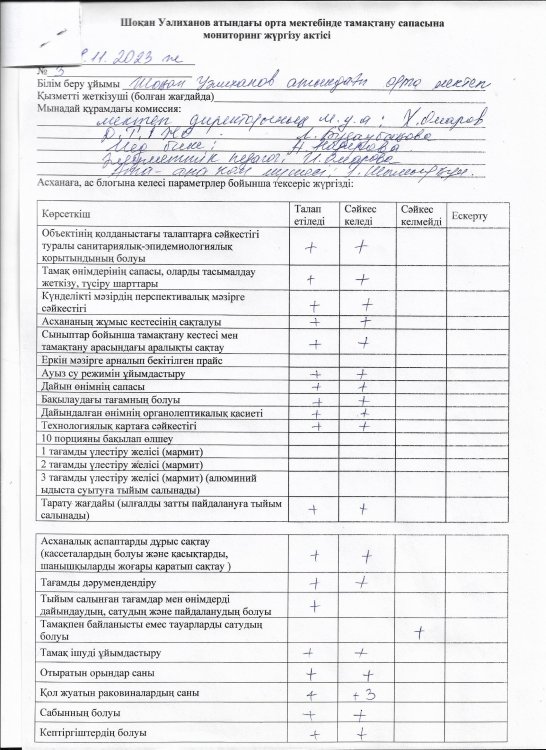 Шоқан Уәлиханов атындағы орта мектебінде тамақтану сапасына
мониторинг жүргізу актісі
.11.2023 ж
№ 3
Білім беру ұйымы Шоқан Уәлиханов атындағы орта мектеп
Қызметті жеткізуші (болған жағдайда)
Мынадай құрамдағы комиссия:
мектеп директорының м.у.а: Х.Омаров
Мед бике:
Әлеуметтік педагог: И.Омарова
Ата-ана
Асханаға, ас блогына келесі параметрлер бойынша тексеріс жүргізді:
Көрсеткіш Талап етіледі Сәйкес келеді Сәйкес келмейді Ескерту
Объектінің қолданыстағы талаптарға сәйкестігі
туралы санитариялық-эпидемиологиялық + +
қорытындының болуы
Тамақ өнімдерінің сапасы, оларды тасымалдау
жеткізу, түсіру шарттары + +
Күнделікті мәзірдің перспективалық мәзірге
сәйкестігі + +
Асхананың жұмыс кестесінің сақталуы + +
Сыныптар бойынша тамақтану кестесі мен
тамақтану арасындағы аралықты сақтау + +
Еркін мәзірге арналып бекітілген прайс
Ауыз су режимін ұйымдастыру + +
Дайын өнімнің сапасы + +
Бақылаудағы тағамның болуы + +
Дайындалған өнімнің органолептикалық қасиеті + +
Технологиялық картаға сәйкестігі + +
10 порцияны бақылап өлшеу
1 тағамды үлестіру желісі (мармит)
2 тағамды үлестіру желісі (мармит)
3 тағамды үлестіру желісі (мармит) (алюминий
ыдыста суытуға тыйым салынады)
Тарату жағдайы (ылғалды затты пайдалануға тыйым
салынады) + +
Асханалық аспаптарды дұрыс сақтау
(кассеталардың болуы және қасықтарды, + +
шанышқыларды жоғары қаратып сақтау )
Тағамды дәрумендендіру + +
Тыйым салынған тағамдар мен өнімдерді
дайындаудың, сатудың және пайдаланудың болуы +
Тамақпен байланысты емес тауарларды сатудың
болуы +
Тамақ ішуді ұйымдастыру + +
Отыратын орындар саны + +
Қол жуатын раковиналардың саны 4 +3
Сабынның болуы + +
Кептіргіштердің болуы + +